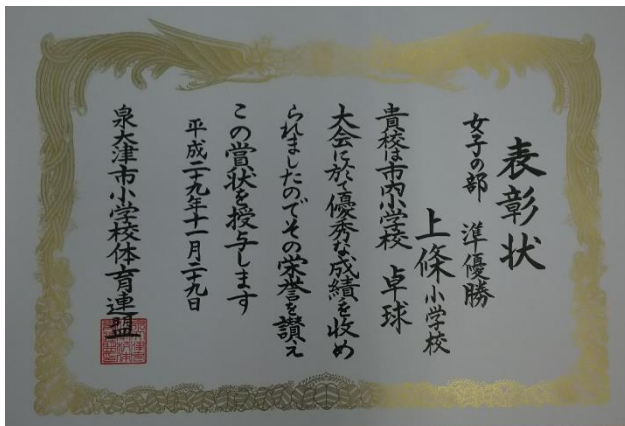 表彰状
女子の部 準優勝
上條小学校
貴校は市内小学校 卓球
大会に於て優秀な成績を收め
られましたのでその栄誉を讃え
この賞状を授与します
平成二十九年十一月二十九日
泉大津市小学校体育連盟